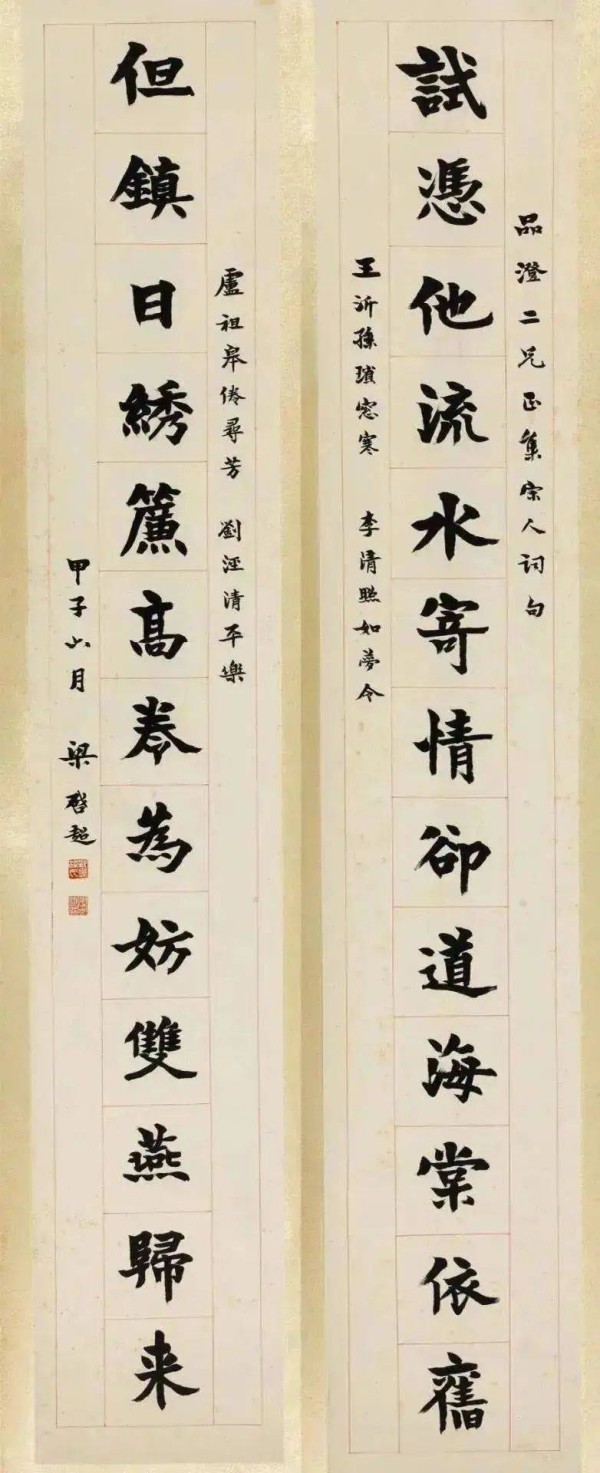 品澄二兄正集宋人词句
試憑他流水寄情卻道海棠依舊
王沂孫瑣窓寒　李清照如夢令
盧祖皋倦尋芳　劉涇清平樂
但鎮日綉簾高捲為妨雙燕歸来
甲子六月　梁啓超